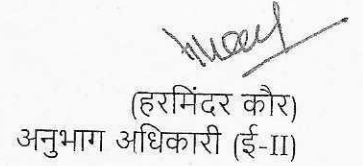 (हरमिंदर कौर)
अनुभाग अधिकारी (ई-II)